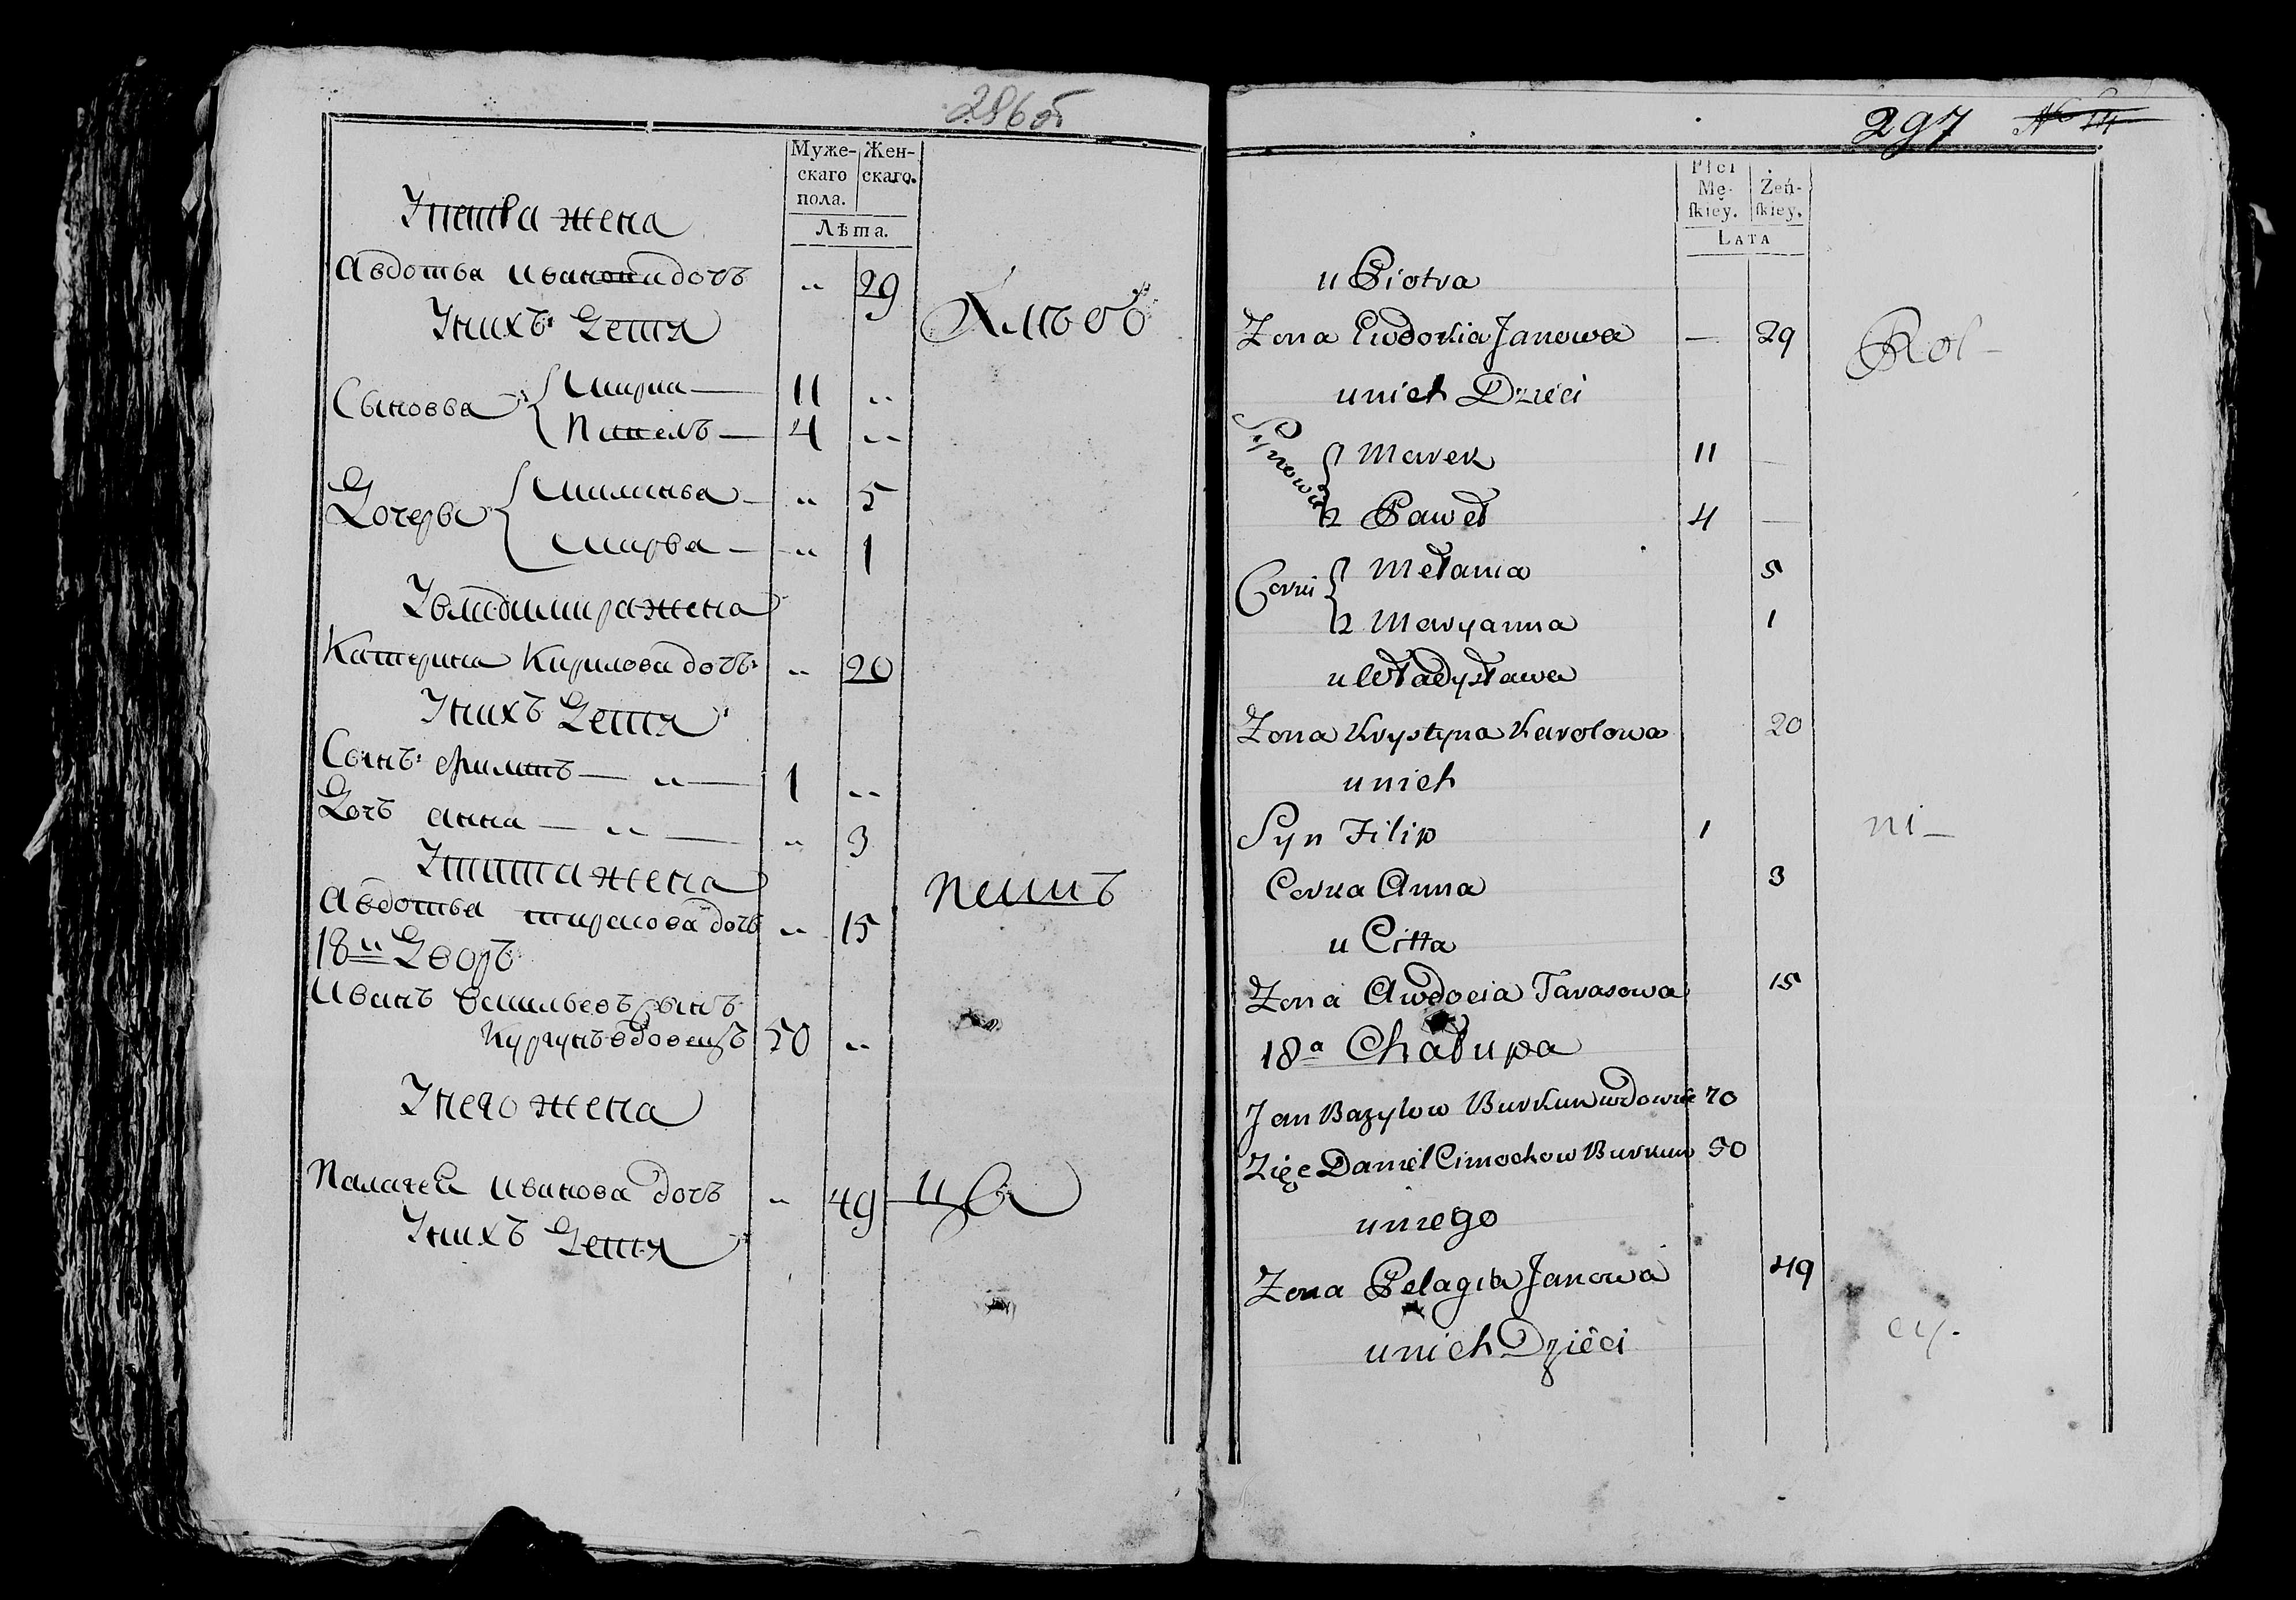 286об
Муже-
скаго
пола.
Жен-
скаго.
Лѣта.
Упетра жена
Авдотья Иванова дочь " 29
Унихъ Дети
Сыновья Марка 11 "
Павелъ 4 "
Дочери Маланья " 5
Марья " 1
Увладимира жена
Катерина Кирилова дочь " 20
Унихъ Дети
Сынъ Филипъ 1 "
Дочь анна " 3
Утита жена
Авдотья тарасова дочь " 15
18й Дворъ
Иванъ васильевъ сынъ
вдовецъ 50 "
Унего жена
Палагея Иванова дочь " 49
Унихъ Дети
297
Płci
Mę-
skiey.
Żeń-
skiey.
LATA
u Piotra
Zona Ewdokia Janowa — 29
unich Dzieci
Synowie Marek 11 —
Paweł 4 —
Corki Mełania 5
Maryanna 1
u Władysława
Zona Krystyna Karolowa 20
unich
Syn Filip 1
ni—
Corka Anna 3
u Citta
Zona Awdocia Tarasowa 15
18a Chałupa
Jan Bazylow Burkun wdowie 70
Zięc Daniel Cimochow Burkun 50
uniego
Zona Pelagia Janowa 49
unich Dzieci